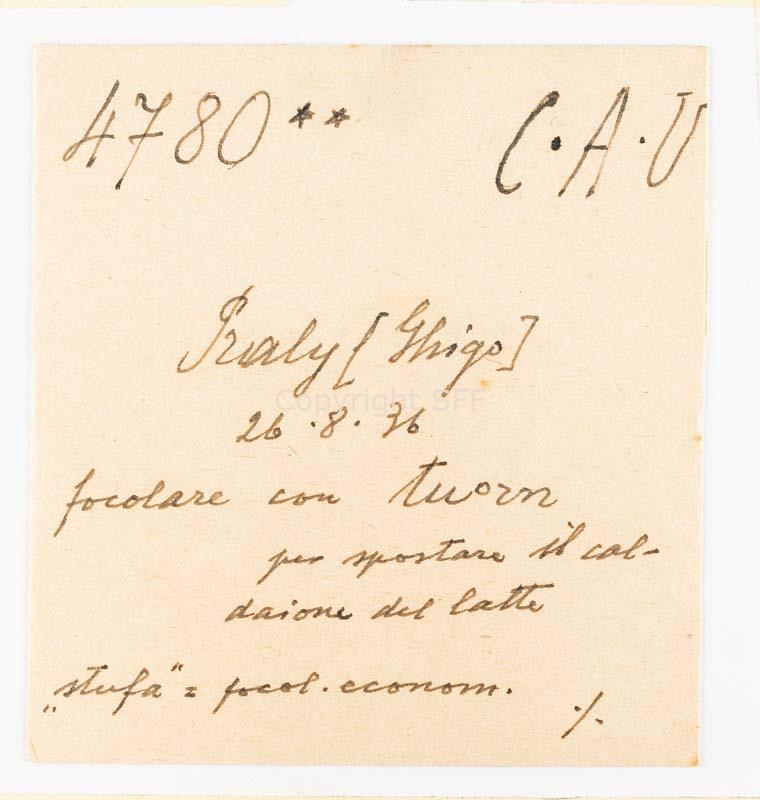 4780** C.A.V
Praly [Ghigo]
Copyright SFF
26.8.36
focolare con tuorn
per spostare il cal-
daione del latte
„stufa" = focol. econom.
./.